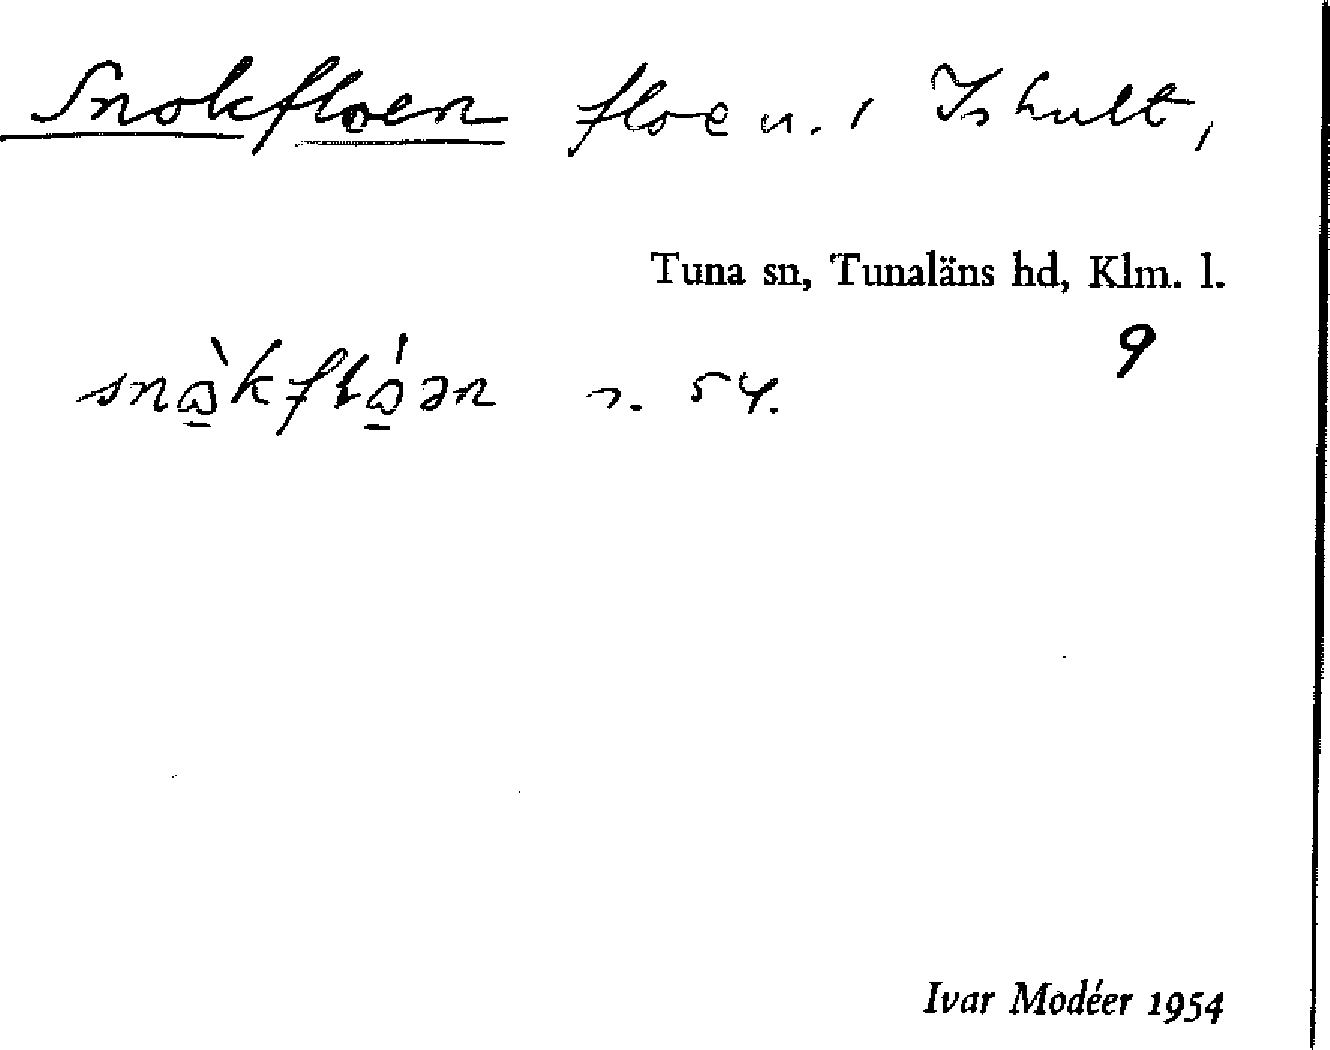 Snokfloen floen. i Ishult,
Tuna sn, Tunaläns hd, Klm. l.
9
54.
Ivar Modéer 1954